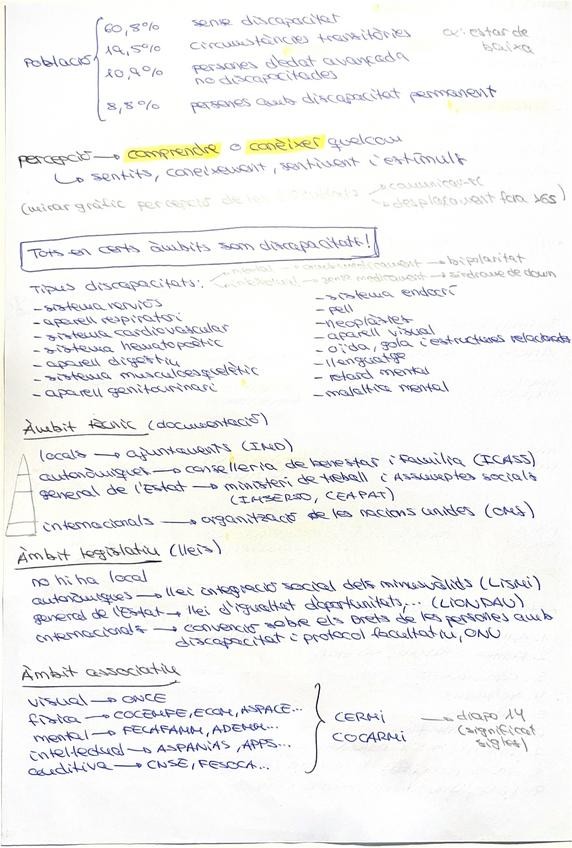 Població
60,8% sense discapacitat
19,5% circumstàncies transitòries ex: estar de baixa
10,9% persones d'edat avançada no discapacitades
8,8% persones amb discapacitat permanent
percepció → comprendre o conèixer quelcom
↳ sentits, coneixement, sentiment i estímuls
(mirar gràfic percepció de les → comunicar-se
→ desplaçament fora >65)
Tots en certs àmbits som discapacitats!
Tipus discapacitats: mental → amb medicament → bipolaritat
intel·lectual → sense medicament → síndrome de down
- sistema nerviós
- aparell respiratori
- sistema cardiovascular
- sistema hematopoètic
- aparell digestiu
- sistema musculoesquelètic
- aparell genitourinari
- sistema endocrí
- pell
- neoplàsies
- aparell visual
- oïda, gola i estructures relacionades
- llenguatge
- retard mental
- malaltia mental
Àmbit tècnic (documentació)
locals → ajuntaments (IMD)
autonòmiques → conselleria de benestar i família (ICASS)
general de l'Estat → ministeri de treball i Assumptes socials
(IMSERSO, CEAPAT)
internacionals → organització de les nacions unides (ONU)
Àmbit legislatiu (lleis)
no hi ha local
autonòmiques → llei integració social dels minusvàlids (LISMI)
general de l'Estat → llei d'igualtat d'oportunitats,... (LIONDAU)
internacionals → convenció sobre els Drets de les persones amb
discapacitat i protocol facultatiu, ONU
Àmbit associatiu
visual → ONCE
física → COCEMFE, ECOM, ASPACE...
mental → FECAFAMM, ADEMM...
intel·lectual → ASPANIAS, APPS...
auditiva → CNSE, FESOCA...
CERMI
COCARMI
→ diapo 14
(significat
sigles)